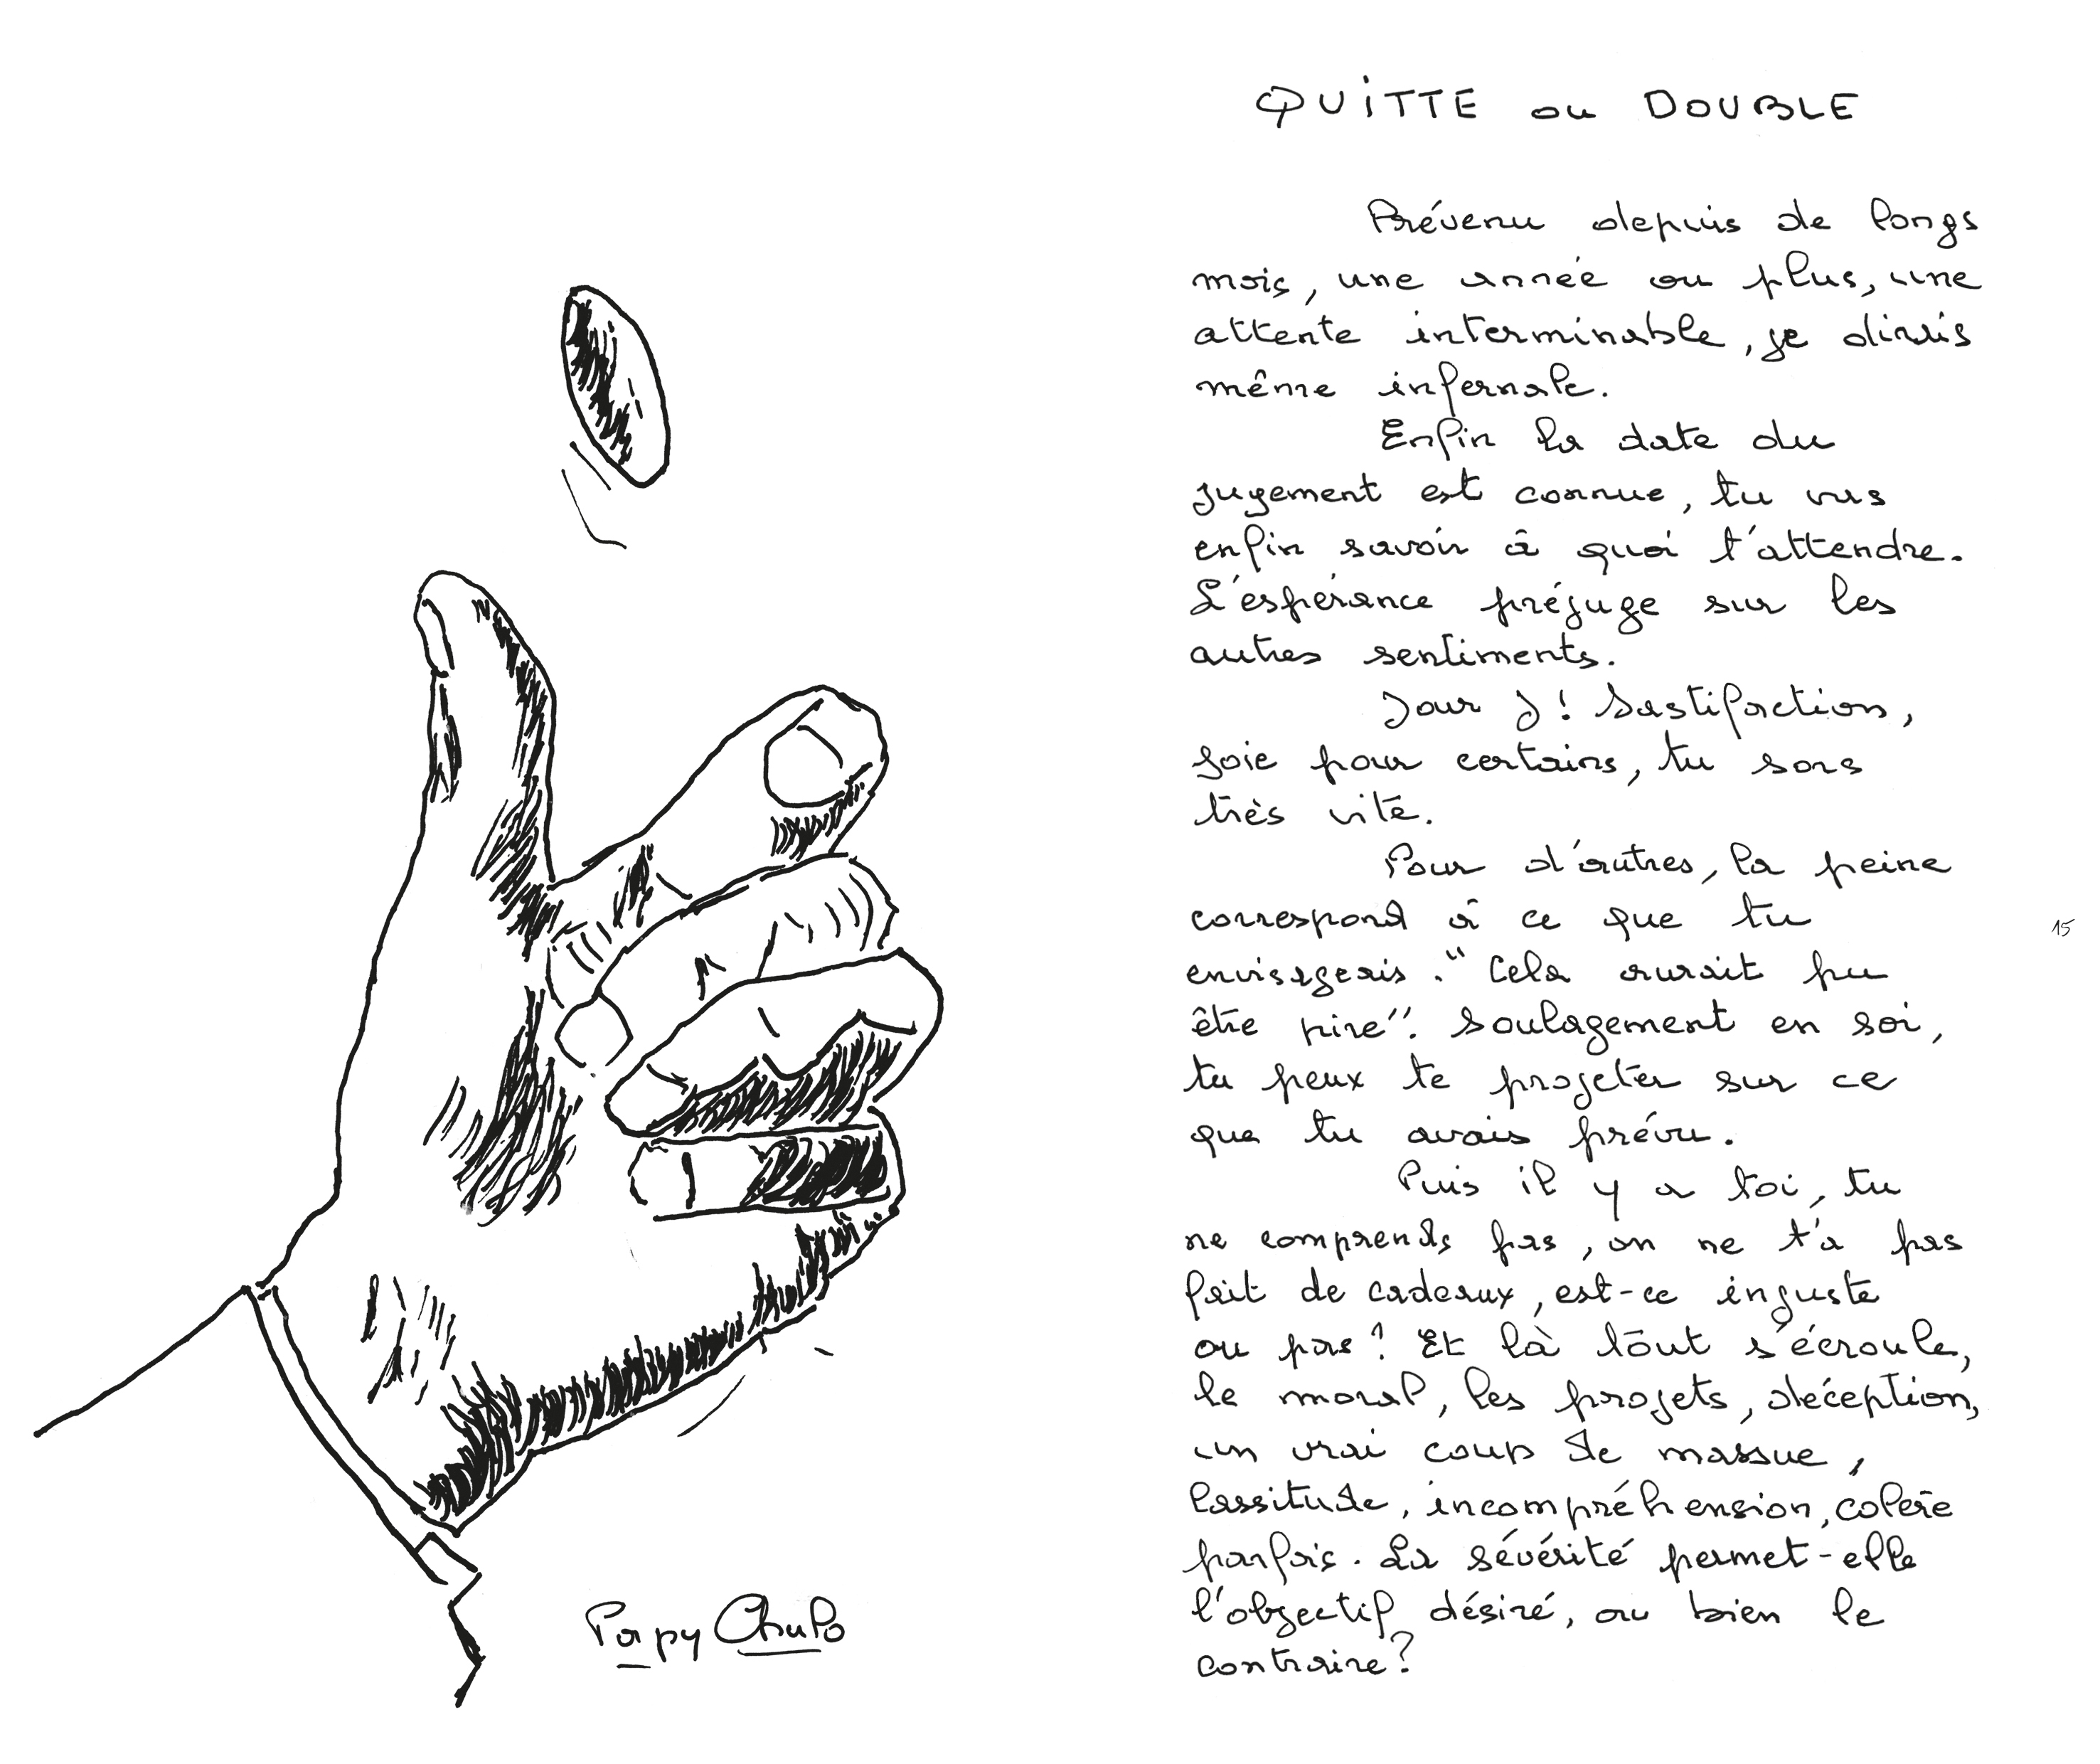 QUiTTE ou DOUBLE
Prévenu depuis de longs
mois, une année ou plus, une
attente interminable, je dirais
même infernale.
Enfin la date du
jugement est connue, tu vas
enfin savoir à quoi t'attendre.
L'espérance préjuge sur les
autres sentiments.
Jour J! Sastifaction,
joie pour certains, tu sors
très vite.
Pour d'autres, la peine
correspond à ce que tu
envisageais. "Cela aurait pu
être pire". Soulagement en soi,
tu peux te projeter sur ce
que tu avais prévu.
Puis il y a toi, tu
ne comprends pas, on ne t'a pas
fait de cadeaux, est-ce injuste
ou pas? Et là tout s'écroule,
le moral, les projets, déception,
un vrai coup de massue,
lassitude, incompréhension, colère
parfois. La sévérité permet-elle
l'objectif désiré, ou bien le
contraire?
15
Papy Chulo